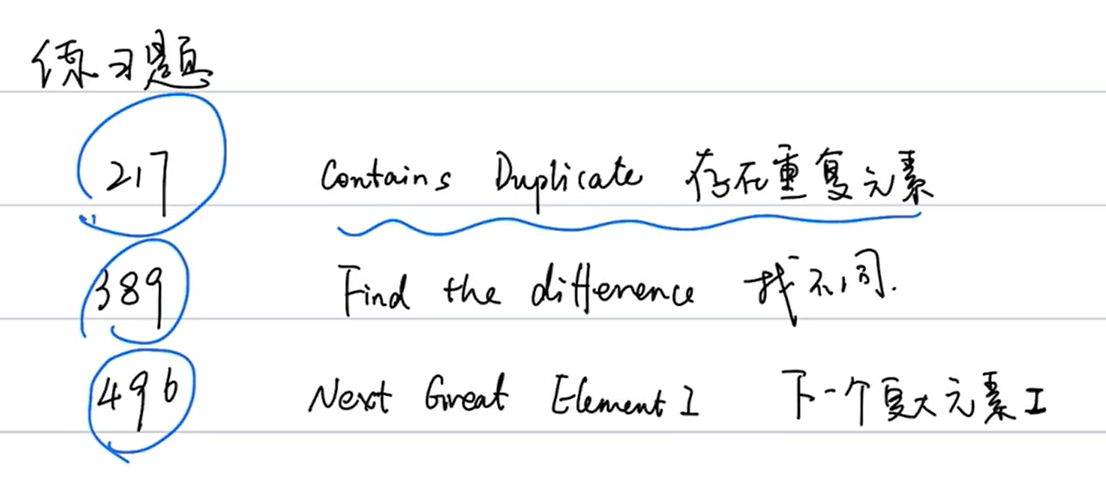 练习题
217 Contains Duplicate 存在重复元素
389 Find the difference 找不同.
496 Next Great Element I 下一个更大元素 I